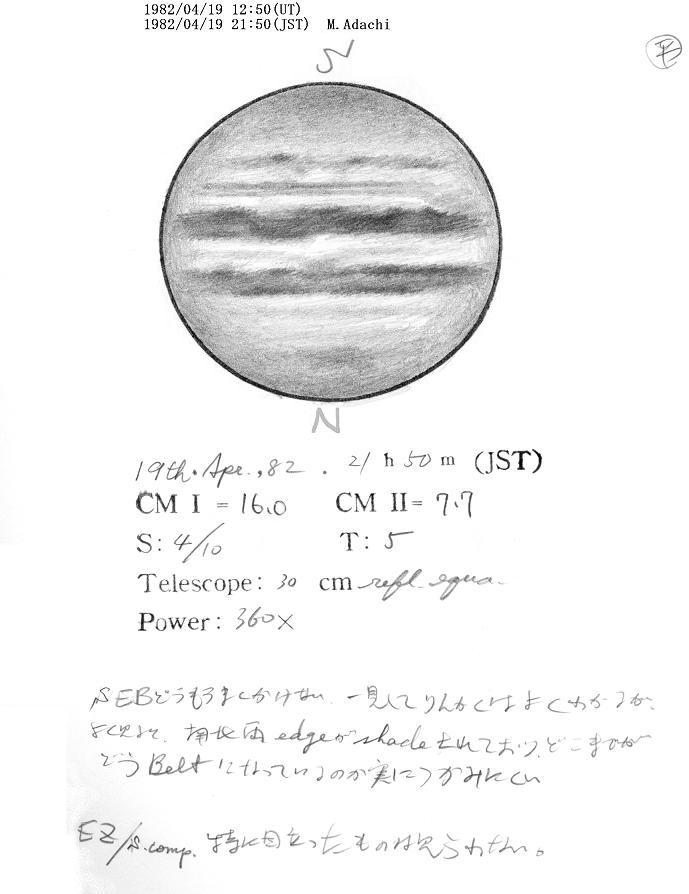 1982/04/19 12:50(UT)
1982/04/19 21:50(JST) M.Adachi
S
平
N
19th. Apr., 82. 21 h 50 m (JST)
CM I = 16.0 CM II = 7.7
S: 4/10 T: 5
Telescope: 30 cm refl. equa.
Power: 360×
SEBどうもうまくかけない. 一見してりんかくはよくわかるが、
よく見ると、南北両edgeがshadeされており、どこまでが
どうBeltになっているのか実につかみにくい
EZ/S.comp. 特に目立ったものは見られません。